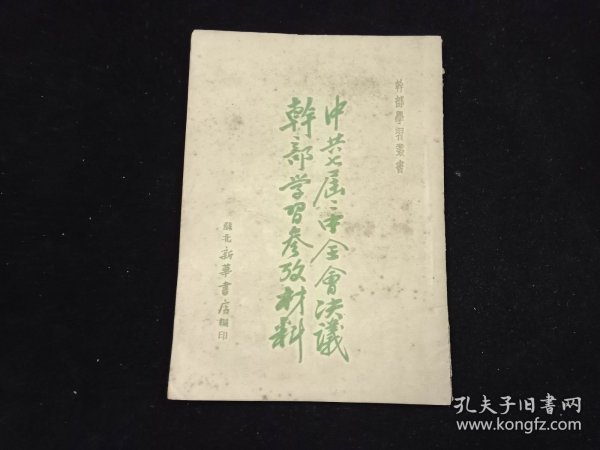 幹部學習叢書
中共七届二中全會决議
幹部学習參攷材料
蘇北新華書店編印
孔夫子旧書网
www.kongfz.com